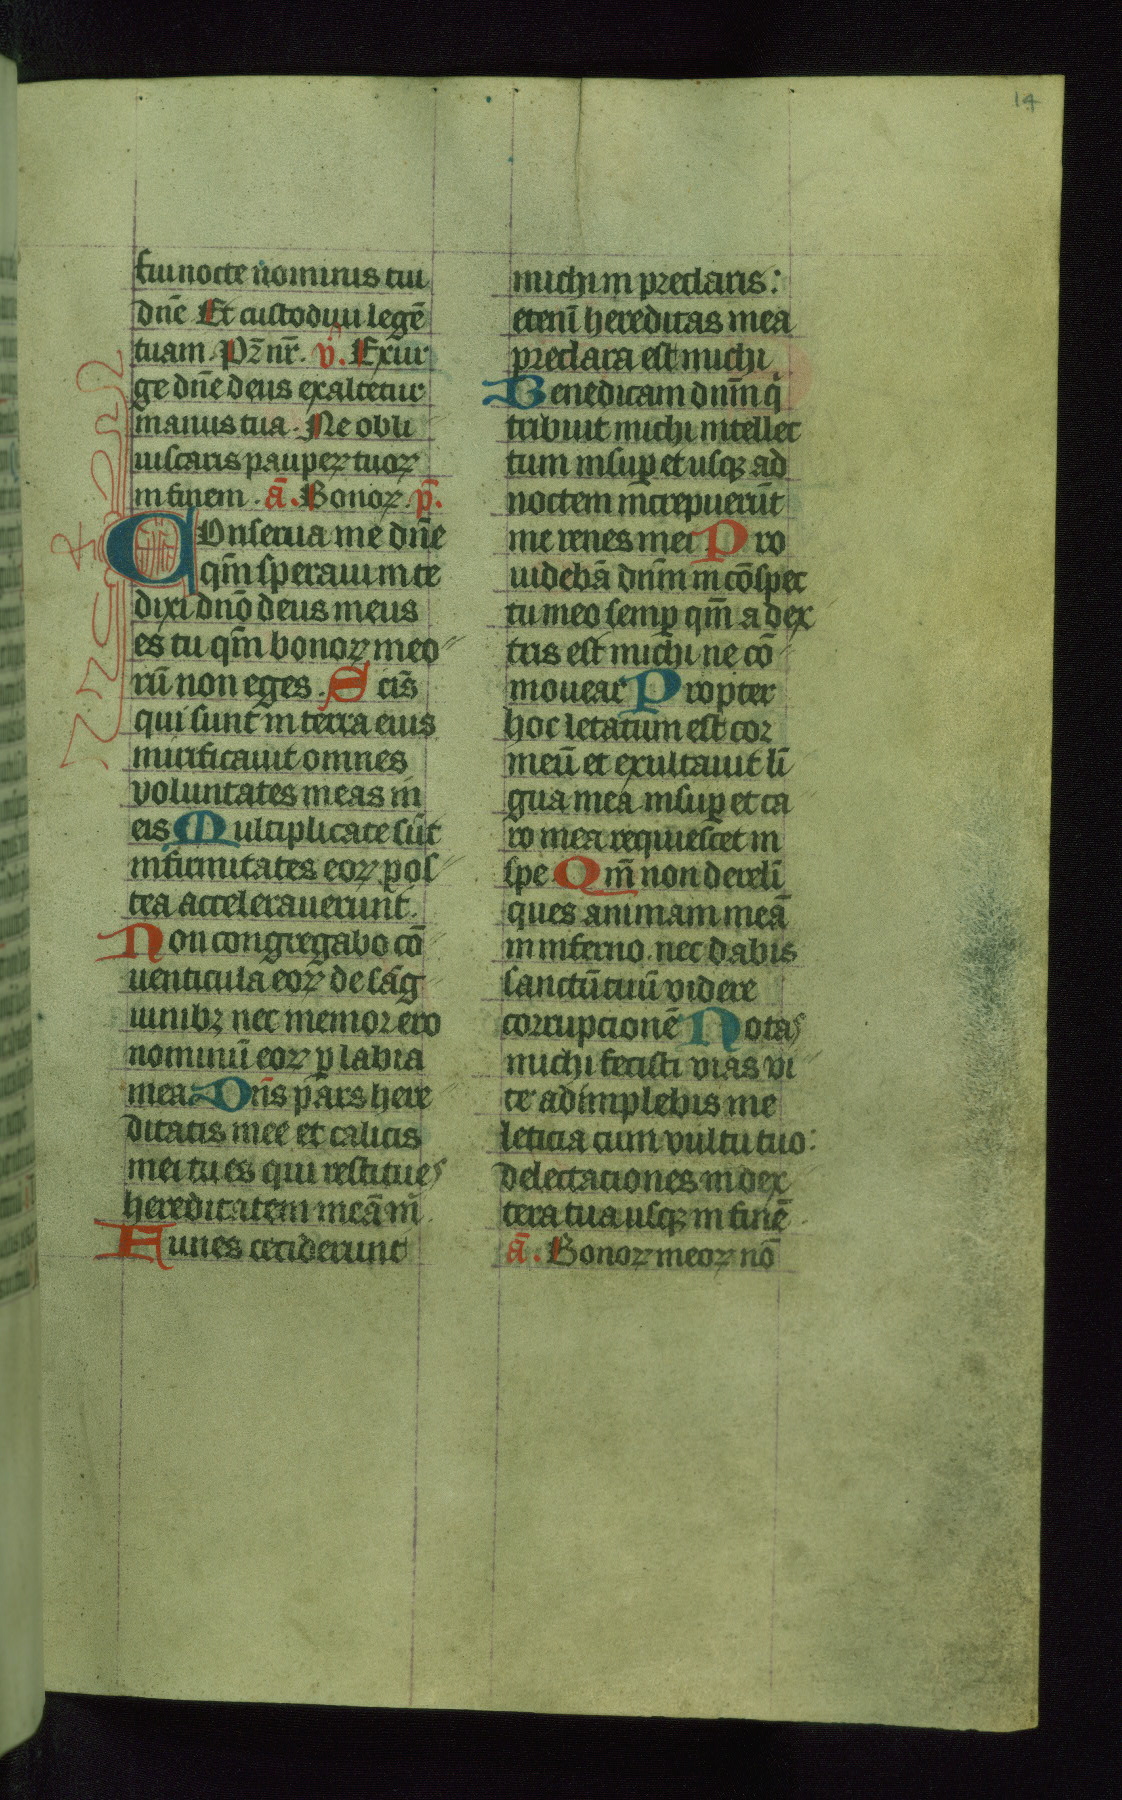 14
fui nocte nominis tui
dn̄e Et custodiui legē
tuam. Pr̄ nr̄. v̄. Exur
ge dn̄e deus exaltetur
manus tua. Ne obli
uiscaris pauperꝝ tuoꝝ
in finem. ā. Bonoꝝ. p̄.
Conserua me dn̄e
qm̄ speraui in te
dixi dn̄o deus meus
es tu qm̄ bonoꝝ meo
rū non eges. Scīs
qui sunt in terra eius
mirificauit omnes
voluntates meas in
eis Multiplicate sūt
infirmitates eoꝝ pos
tea accelerauerunt.
Non congregabo cō
uenticula eoꝝ de sāg
uinibꝫ nec memor ero
nominū eoꝝ ꝑ labia
mea Dn̄s pars here
ditatis mee et calicis
mei tu es qui restitues
hereditatem meā m̄
Funes ceciderunt
michi in preclaris:
eteni hereditas mea
preclara est michi
Benedicam dnm̄ q̄
tribuit michi intellec
tum insuꝑ et usqꝫ ad
noctem increpuerūt
me renes mei Pro
uidebā dnm̄ in cōspec
tu meo semꝑ qm̄ a dex
tris est michi ne cō
mouear Propter
hoc letatum est cor
meū et exultauit lī
gua mea insuꝑ et ca
ro mea requiescet in
spe Qm̄ non derelī
ques animam meā
in inferno. nec dabis
sanctū tuū videre
corrupcionē Notas
michi fecisti vias vi
te adimplebis me
leticia cum vultu tuo:
delectaciones in dex
tera tua usqꝫ in finē
ā. Bonoꝝ meoꝝ nō